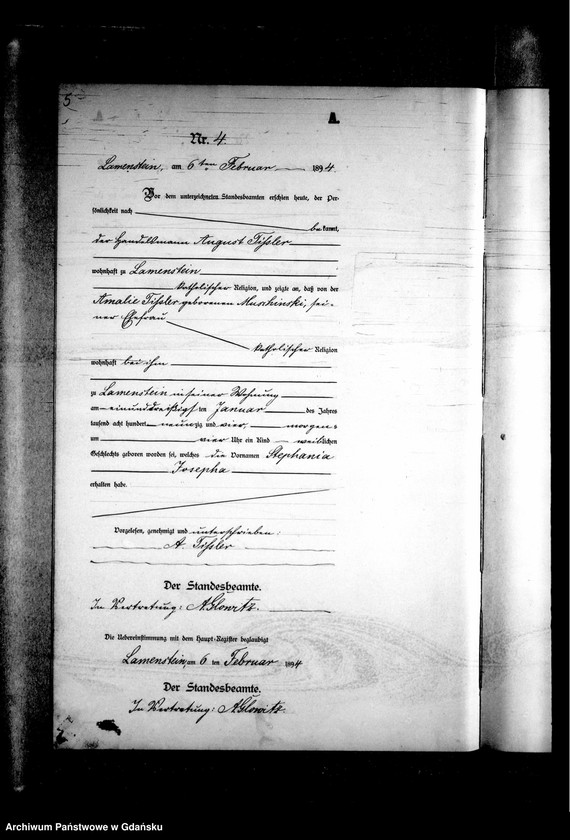 5
A.
Nr. 4.
Lamenstein, am 6ten Februar 1894.
Vor dem unterzeichneten Standesbeamten erschien heute, der Per-
sönlichkeit nach
bekannt,
der Handelsmann August Tißler
wohnhaft zu Lamenstein
katholischer Religion, und zeigte an, daß von der
Amalie Tißler geborenen Muschinski, sei-
ner Ehefrau
katholischer Religion
wohnhaft bei ihm
zu Lamenstein in seiner Wohnung
am einunddreißigsten Januar des Jahres
tausend acht hundert neunzig und vier, morgens
um vier Uhr ein Kind weiblichen
Geschlechts geboren worden sei, welches die Vornamen Stephania
Josepha
erhalten habe.
Vorgelesen, genehmigt und unterschrieben:
A. Tißler
Der Standesbeamte.
In Vertretung: A. Glowitz.
Die Uebereinstimmung mit dem Haupt-Register beglaubigt
Lamenstein, am 6 ten Februar 1894
Der Standesbeamte.
In Vertretung: A. Glowitz.
Archiwum Państwowe w Gdańsku